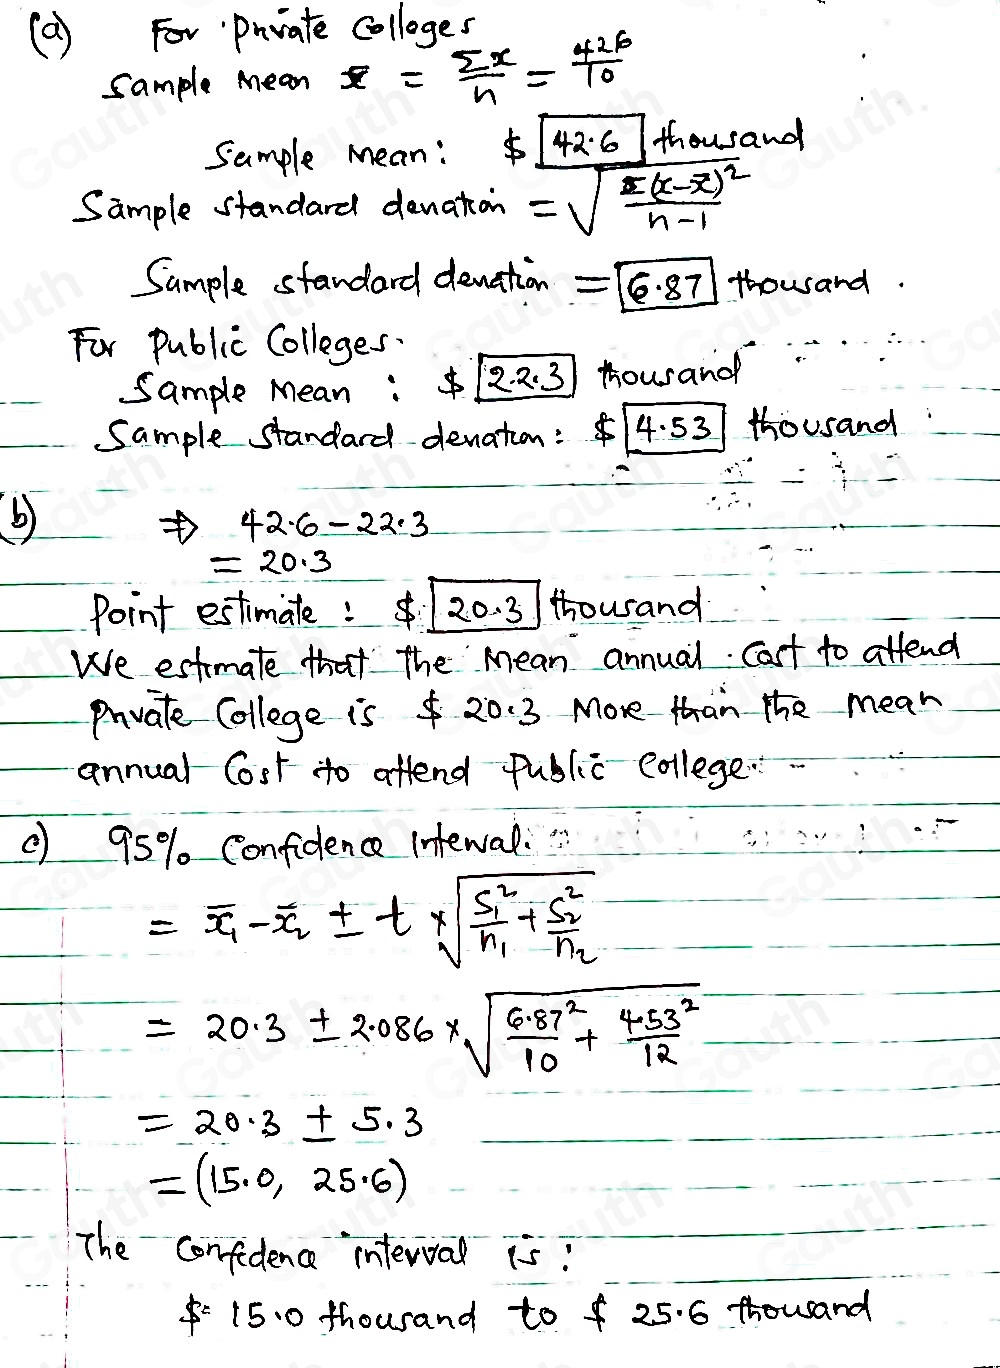 (a) For Private Colleges
Sample Mean x̄ = Σx/n = 426/10
Sample Mean: $ 42.6 thousand
Sample standard deviation = √(Σ(x-x̄)²/n-1)
Sample standard deviation = 6.87 thousand.
For Public Colleges.
Sample Mean : $ 22.3 thousand
Sample standard deviation: $ 4.53 thousand
(b) ⇒ 42.6 - 22.3
= 20.3
Point estimate : $ 20.3 thousand
We estimate that the Mean annual Cost to attend
Private College is $ 20.3 More than the mean
annual Cost to attend Public College.
c) 95% Confidence Interval.
= x̄₁ - x̄₂ ± t × √(S₁²/n₁ + S₂²/n₂)
= 20.3 ± 2.086 × √(6.87²/10 + 4.53²/12)
= 20.3 ± 5.3
= (15.0, 25.6)
The Confidence interval is :
$ 15.0 thousand to $ 25.6 thousand